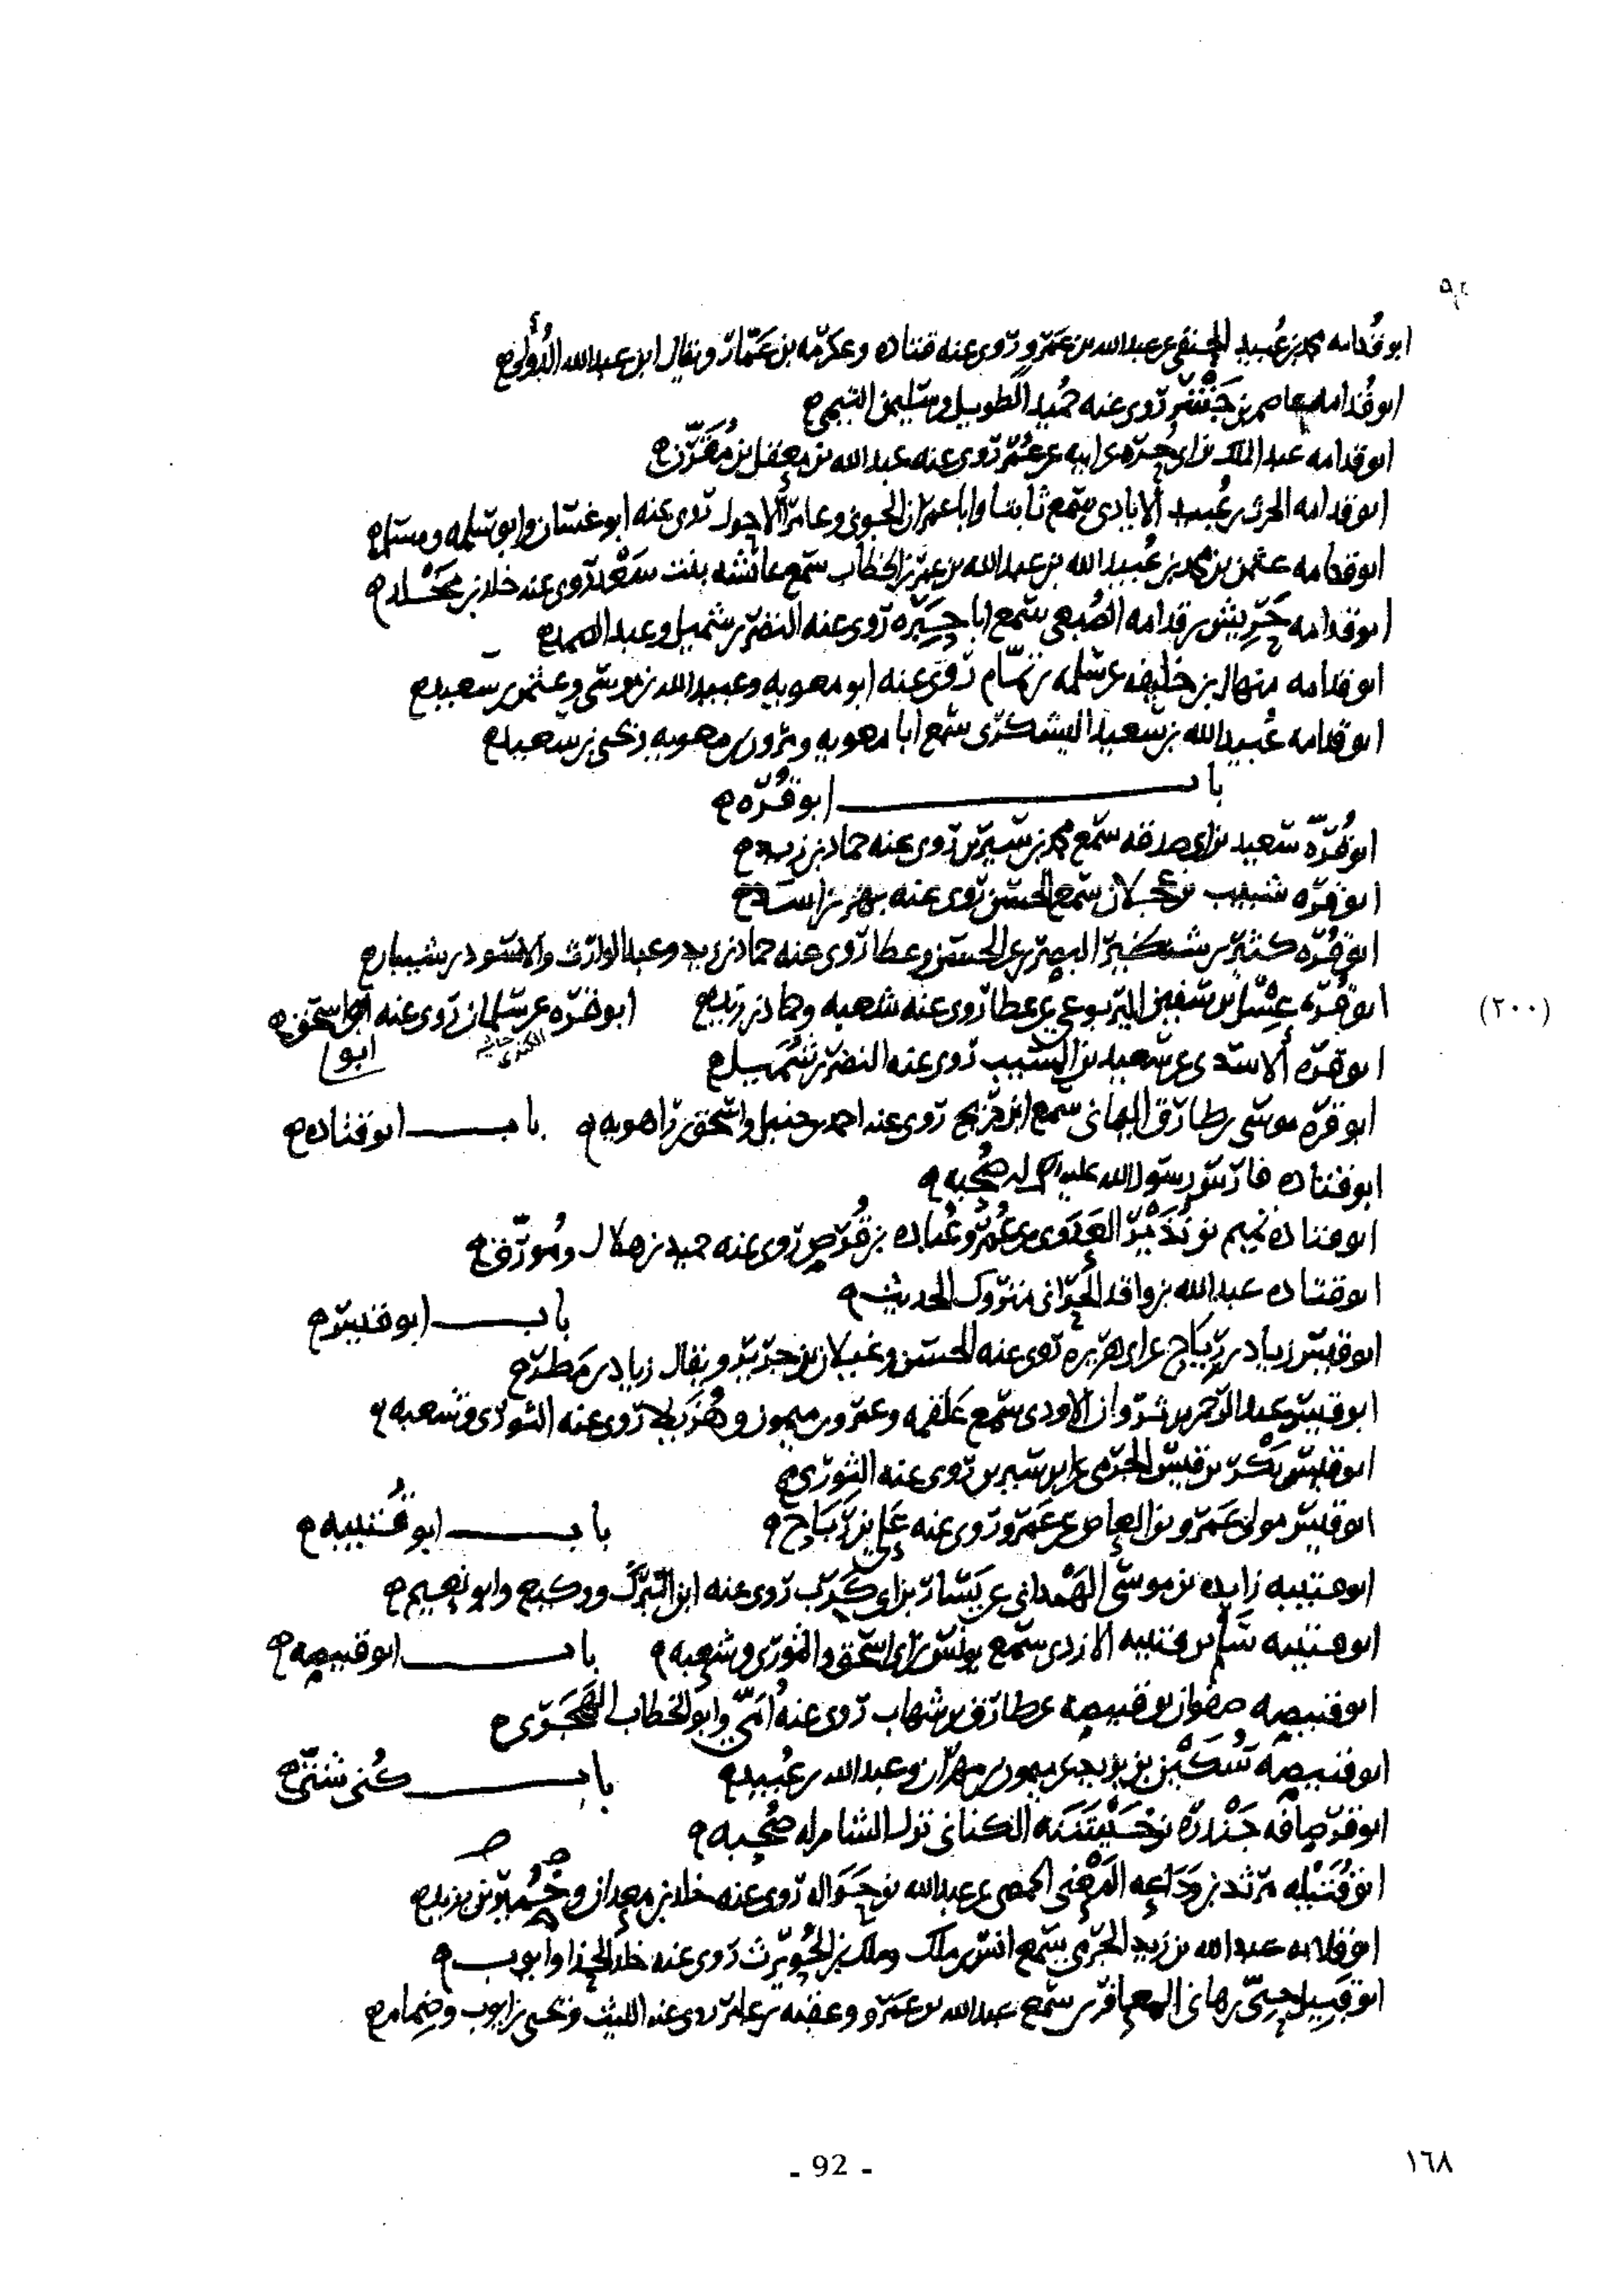 ٩٢
ابو قدامه محمد بن عُبيد الحنفى عن عبدالله بن عَمرو روى عنه قتاده وعكرمه بن عَمّار ويقال ابن عبدالله الدُّولى
ابو قُدامه عاصم بن روى عنه حُميد الطويل وسليمن التيمى
ابو قدامه عبد الملك بن ابى عن ابيه عن عُمر روى عنه عبدالله بن معقل بن مُقَرّن
ابو قدامه الحرث بن عُبيد الايادى سمع ثابتا وابا عمران الجونى وعامر الاحول روى عنه ابو غسان وابو سلمه ومسلم
ابو قدامه عثمن بن محمد بن عُبيد الله بن عبدالله بن عمر بن الخطاب سمع عائشه بنت سَعْد روى عنه خالد بن مَخْلد
ابو قدامه حَرِيش بن قدامه الضُبعى سمع ابا روى عنه النضر بن شميل وعبد الصمد
ابو قدامه منهال بن خليفه عن سلمه بن تمّام روى عنه ابو معويه وعبيدالله بن موسى وعثمن بن سعيد
ابو قدامه عُبيدالله بن سعيد اليشكرى سمع ابا معويه ومرون بن معويه ويحيى بن سعيد
باب ابو قُرّه
ابو قُرّه سعيد بن ابى صدقه سمع محمد بن سيرين روى عنه حماد بن زيد
ابو قرّه شبيب بن عجلان سمع الحسن روى عنه بهز بن اسد
ابو قُرّه كثير بن شنظير البصرى عن الحسن وعطا روى عنه حماد بن زيد وعبد الوارث والاسود بن شيبان
ابو قُرّه عِسْل بن سفين اليربوعى عن عطا روى عنه شعبه وحماد بن زيد ابو قره عن سلمان روى عنه ابو اسحق
(٢٠٠)
الكندى
ابو
ابو قره الاسدى عن سعيد بن المسيب روى عنه النضر بن شُمَيل
ابو قره موسى بن طارق اليمانى سمع ابن جريج روى عنه احمد بن حنبل واسحق بن راهويه باب ابو قتاده
ابو قتاده فارس رسول الله عليه السلم له صُحبه
ابو قتاده تميم بن نُذَيْر العَدَوى عن عُمر وعُباده بن قُرص روى عنه حميد بن هلال ومُورّق
ابو قتاده عبدالله بن واقد الحرّانى متروك الحديث
باب ابو قيس
ابو قيس زياد بن رِيَاح عن ابى هريره روى عنه الحسن وغيلان بن جرير ويقال زياد بن مَطر
ابو قيس عبد الرحمن بن ثروان الاودى سمع علقمه وعمرو بن ميمون وهُزَيلا روى عنه الثورى وشعبه
ابو قيس بَكْر بن قيس الجرمى عن ابن سيرين روى عنه الثورى
ابو قيس مولى عَمرو بن العاص عن عَمرو روى عنه عَلى بن رَبَاح باب ابو قُتيبه
ابو قتيبه زايده بن موسى الهَمْدانى عن بشار بن ابى كَرِب روى عنه ابن المبَرك ووكيع وابو نعيم
ابو قتيبه سَلْم بن قتيبه الازدى سمع يونس بن ابى اسحق والثورى وشعبه باب ابو قبيصه
ابو قبيصه صفوان بن قبيصه عن طارق بن شهاب روى عنه اُمَىّ وابو الخطاب الهَجَرى
ابو قبيصه سُكَيْن بن يزيد عن ميمون بن مهران وعبدالله بن عُبيد باب كُنى شتّى
ابو قرصافه جَنْدَرَه بن خَيْشَنَه الكنانى نزل الشام له صُحبه
ابو قُتَيْله مرثد بن وَدَاعه الحمصى عن عبدالله بن حَوَاله روى عنه خالد بن معدان وخُمير بن يزيد
ابو قلابه عبدالله بن زيد الجرمى سمع انس بن ملك وملك بن الحُويرث روى عنه خالد الحذا وايوب
ابو قَبيل حيىّ بن هانى المعافرى سمع عبدالله بن عَمرو وعقبه بن عامر روى عنه الليث ويحيى بن ايوب وضِمام
- 92 -
١٦٨